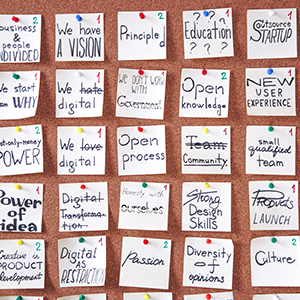 business
& people
INDIVIDED
2
We have
A VISION
Principle
d
Education
? ? ?
? ?
Outsource
STARTUP
We start
from WHY
1
We hate
digital
We DON'T WORK
with
Government.
Open
knowledge
2
NEW
USER
EXPERIENCE
2
not-only-money
POWER
2
We love
digital
Open
process
Team
Community.
small
qualified
team
Power of
idea
1
Digital
Transforma-
tion
Honesty with
ourselves
Strong
Design
Skills
Projects
LAUNCH
1
Creative in
PRODUCT
development
2
Digital
AS
RESTRICTION
1
Passion
2
Diversity
of
opinions
2
Culture
2